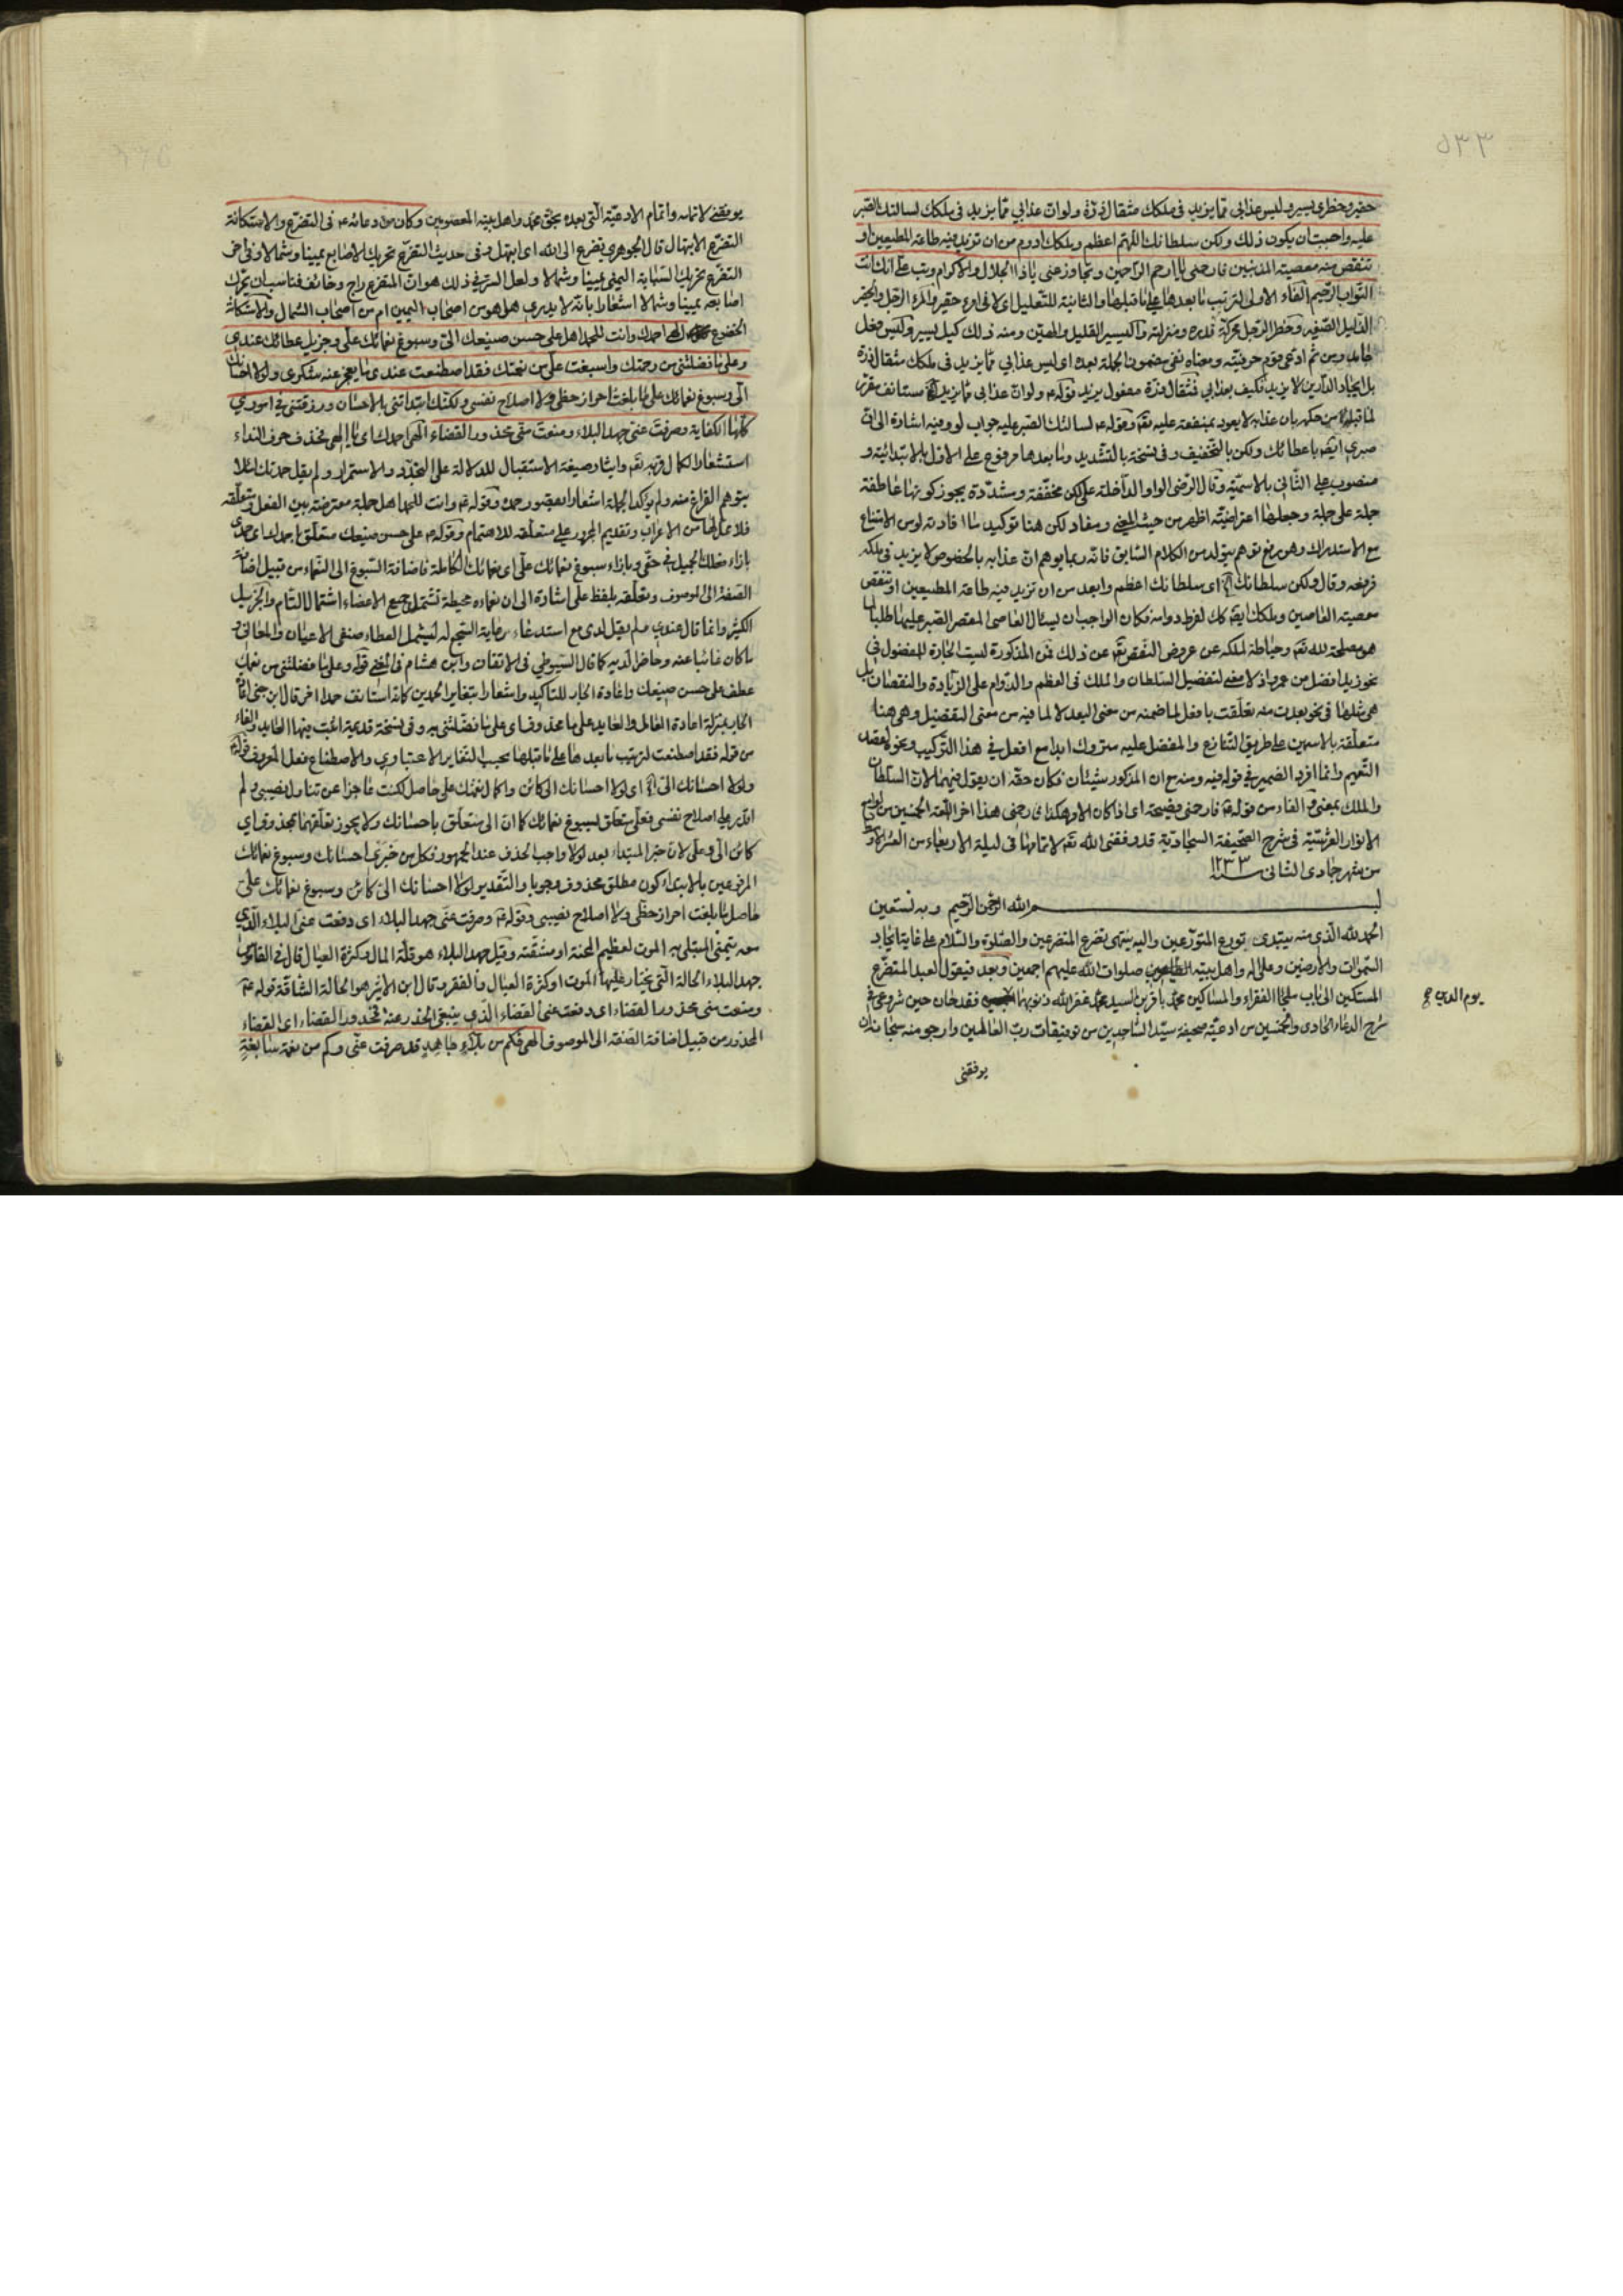 ٥٣٣
حقير وخطري يسير وليس عذابي مما يزيد في ملكك مثقال ذرة ولو ان عذابي مما يزيد في ملكك لسالتك الصبر
عليه واحببت ان يكون ذلك ولكن سلطانك اللهم اعظم وملكك ادوم من ان تزيد فيه طاعة المطيعين او
تنقص منه معصية المذنبين فارحمني يا ارحم الراحمين وتجاوز عني يا ذا الجلال والاكرام وتب علي انك انت
التواب الرحيم الفاء الاولى لترتيب ما بعدها على ما قبلها والثانية للتعليل اي لاني امرء حقير والمرء الرجل والحقير
الذليل الصغير وخطر الرجل محركة قدره ومنزلته واليسير القليل والهين ومنه ذلك كيل يسير وليس فعل
جامد ومن ثم ادعى قوم حرفيته ومعناه نفي مضمون الجملة بعده اي ليس عذابي مما يزيد في ملكك مثقال ذرة
بل ايجاد الدارين لا يزيد فكيف بعذابي فمثقال ذرة مفعول يزيد قوله ع ولو ان عذابي مما يزيد الخ مستانف مقرر
لما قبله من حكم بان عذابه لا يعود بمنفعة عليه تع وقوله ع لسالتك الصبر عليه جواب لو وفيه اشارة الى ان
صبري ايضا باعطائك ولكن بالتخفيف وفي نسخة بالتشديد وما بعدها مرفوع على الاول بالابتدائية و
منصوب على الثاني بالاسمية وقال الرضي الواو الداخلة على لكن مخففة ومشددة يجوز كونها عاطفة
جملة على جملة وجعلها اعتراضية اظهر من حيث المعنى ومفاد لكن هنا توكيد ما افادته لو من الامتناع
مع الاستدراك وهو رفع توهم يتولد من الكلام السابق فانه ربما يوهم ان عذابه بالخصوص لا يزيد في ملكه
فرفعه وقال ولكن سلطانك الخ اي سلطانك اعظم وابعد من ان تزيد فيه طاعة المطيعين او تنقص
معصية العاصين وملكك ايضا كك لفرط دوامه فكان الواجب ان يسئال العاصي المقصر الصبر عليها طلبا لما
هو مصلحة لله تع وحياطة لملكه عن عروض النقص تع عن ذلك فمن المذكورة ليست الجارة للمفضول في
نحو زيد افضل من عمرو اذ لا معنى لتفضيل السلطان والملك في العظم والدوام على الزيادة والنقصان بل
هي مثلها في نحو بعدت منه تعلقت بافعل لما ضمنه من معنى البعد لا لما فيه من معنى التفضيل وهي هنا
متعلقة بالاسمين على طريق التنازع والمفضل عليه متروك ابدا مع افعل في هذا التركيب ونحوه لقصد
التعميم وانما افرد الضمير في قوله فيه ومنه مع ان المذكور شيئان فكان حقه ان يقول فيهما لان السلطان
والملك بمعنى والفاء من قوله ع فارحمني فصيحة اي اذا كان الامر هكذا فارحمني هذا اخر اللمعة الخمسين من لوامع
الانوار العرشية في شرح الصحيفة السجادية قد وفقني الله تع لاتمامها في ليلة الاربعاء من العشر الاول
من شهر جمادي الثاني سنة ١٢٣٣
بسم الله الرحمن الرحيم وبه نستعين
الحمد لله الذي منه يبتدي تورع المتورعين واليه ينتهي تضرع المتضرعين والصلوة والسلام على غاية ايجاد
السموات والارضين وعلى اله واهل بيته الطاهرين صلوات الله عليهم اجمعين وبعد فيقول العبد المتضرع
المستكين الى باب ملجا الفقراء والمساكين محمد باقر بن السيد محمد غفر الله ذنوبهما فقد حان حين شروعي في
يوم الدين صح
شرح الدعاء الحادي والخمسين من ادعية صحيفة سيد الساجدين من توفيقات رب العالمين وارجو منه سبحانه ان
يوفقني
يوفقني لاتمامه واتمام الادعية التي بعده بحق محمد واهل بيته المعصومين وكان من دعائه ع في التضرع والاستكانة
التضرع الابتهال قال الجوهري تضرع الى الله اي ابتهل وفي حديث التضرع تحريك الاصابع يمينا وشمالا وفي اخر
التضرع تحريك السبابة اليمنى يمينا وشمالا ولعل السر في ذلك هو ان المتضرع راج وخائف فناسب ان يحرك
اصابعه يمينا وشمالا اشعارا بانه لا يدري هل هو من اصحاب اليمين ام من اصحاب الشمال والاستكانة
الخضوع الهي احمدك وانت للحمد اهل على حسن صنيعك الي وسبوغ نعمائك علي وجزيل عطائك عندي
وعلى ما فضلتني من رحمتك واسبغت علي من نعمتك فقد اصطنعت عندي ما يعجز عنه شكري ولولا احسانك
الي وسبوغ نعمائك علي ما بلغت احراز حظي ولا اصلاح نفسي ولكنك ابتداتني بالاحسان ورزقتني في اموري
كلها الكفاية وصرفت عني جهد البلاء ومنعت مني محذور القضاء الهي احمدك اي يا الهي بحذف حرف النداء
استشعارا لكمال قربه تع وايثار صيغة الاستقبال للدلالة على التجدد والاستمرار ولم يقل حمدتك لئلا
يتوهم الفراغ منه ولم يوكد الجملة اشعارا بقصور حمده وقوله ع وانت للحمد اهل جملة معترضة بين الفعل ومتعلقه
فلا محل لها من الاعراب وتقديم المجرور على متعلقه للاهتمام وقوله ع على حسن صنيعك متعلق باحمدك اي حمدي
بازاء فعلك الجميل في حقي وبازاء سبوغ نعمائك علي اي نعمائك الكاملة فاضافة السبوغ الى النعماء من قبيل اضافة
الصفة الى الموصوف وتعلقه بلفظ على اشارة الى ان نعماءه محيطة تشتمل جميع الاعضاء اشتمالا التام والجزيل
الكثير وانما قال عندي ولم يقل لدي مع استدعاء رعاية السجع له ليشمل العطاء صنفي الاعيان والمعاني و
ما كان غائبا عنه وحاضرا لديه كما قال السيوطي في الاتقان وابن هشام في المغني قوله وعلى ما فضلتني من نعمك
عطف على حسن صنيعك واعادة الجار للتاكيد واشعارا بتغاير الحمدين كانه استانف حمدا اخر قال ابن جني اعادة
الجار بمنزلة اعادة العامل والعايد على ما محذوف اي على ما فضلتني به وفي نسخة قديمة اثبت فيها العايد والفاء
من قوله فقد اصطنعت لترتيب ما بعدها على ما قبلها بحسب التغاير الاعتباري والاصطناع فعل المعروف قوله ع
ولولا احسانك الي الخ اي لولا احسانك الي كائن واكمال نعمتك علي حاصل لكنت عاجزا عن تناول نصيبي ولم
اقدر على اصلاح نفسي فعلي متعلق لسبوغ نعمائك كما ان الي متعلق باحسانك ولا يجوز تعلقهما بمحذوف اي
كائن الي وعلي لان خبر المبتداء بعد لولا واجب الحذف عند الجمهور فكل من خبري احسانك وسبوغ نعمائك
المرفوعين بالابتداء كون مطلق محذوف وجوبا والتقدير لولا احسانك الي كائن وسبوغ نعمائك علي
حاصل ما بلغت احراز حظي ولا اصلاح نصيبي وقوله ع وصرفت عني جهد البلاء اي دفعت عني البلاء الذي
معه يتمنى المبتلى به الموت لعظيم المحنة او مشقته وقيل جهد البلاء هو قلة المال وكثرة العيال قال في القاموس
جهد البلاء الحالة التي يختار عليها الموت او كثرة العيال والفقر وقال ابن الاثير هو الحالة الشاقة قوله ع
ومنعت مني محذور القضاء اي دفعت عني القضاء الذي ينبغي الحذر عنه فمحذور القضاء اي القضاء
المحذور من قبيل اضافة الصفة الى الموصوف الهي فكم من بلاء جاهد قد صرفت عني وكم من نعمة سابغة